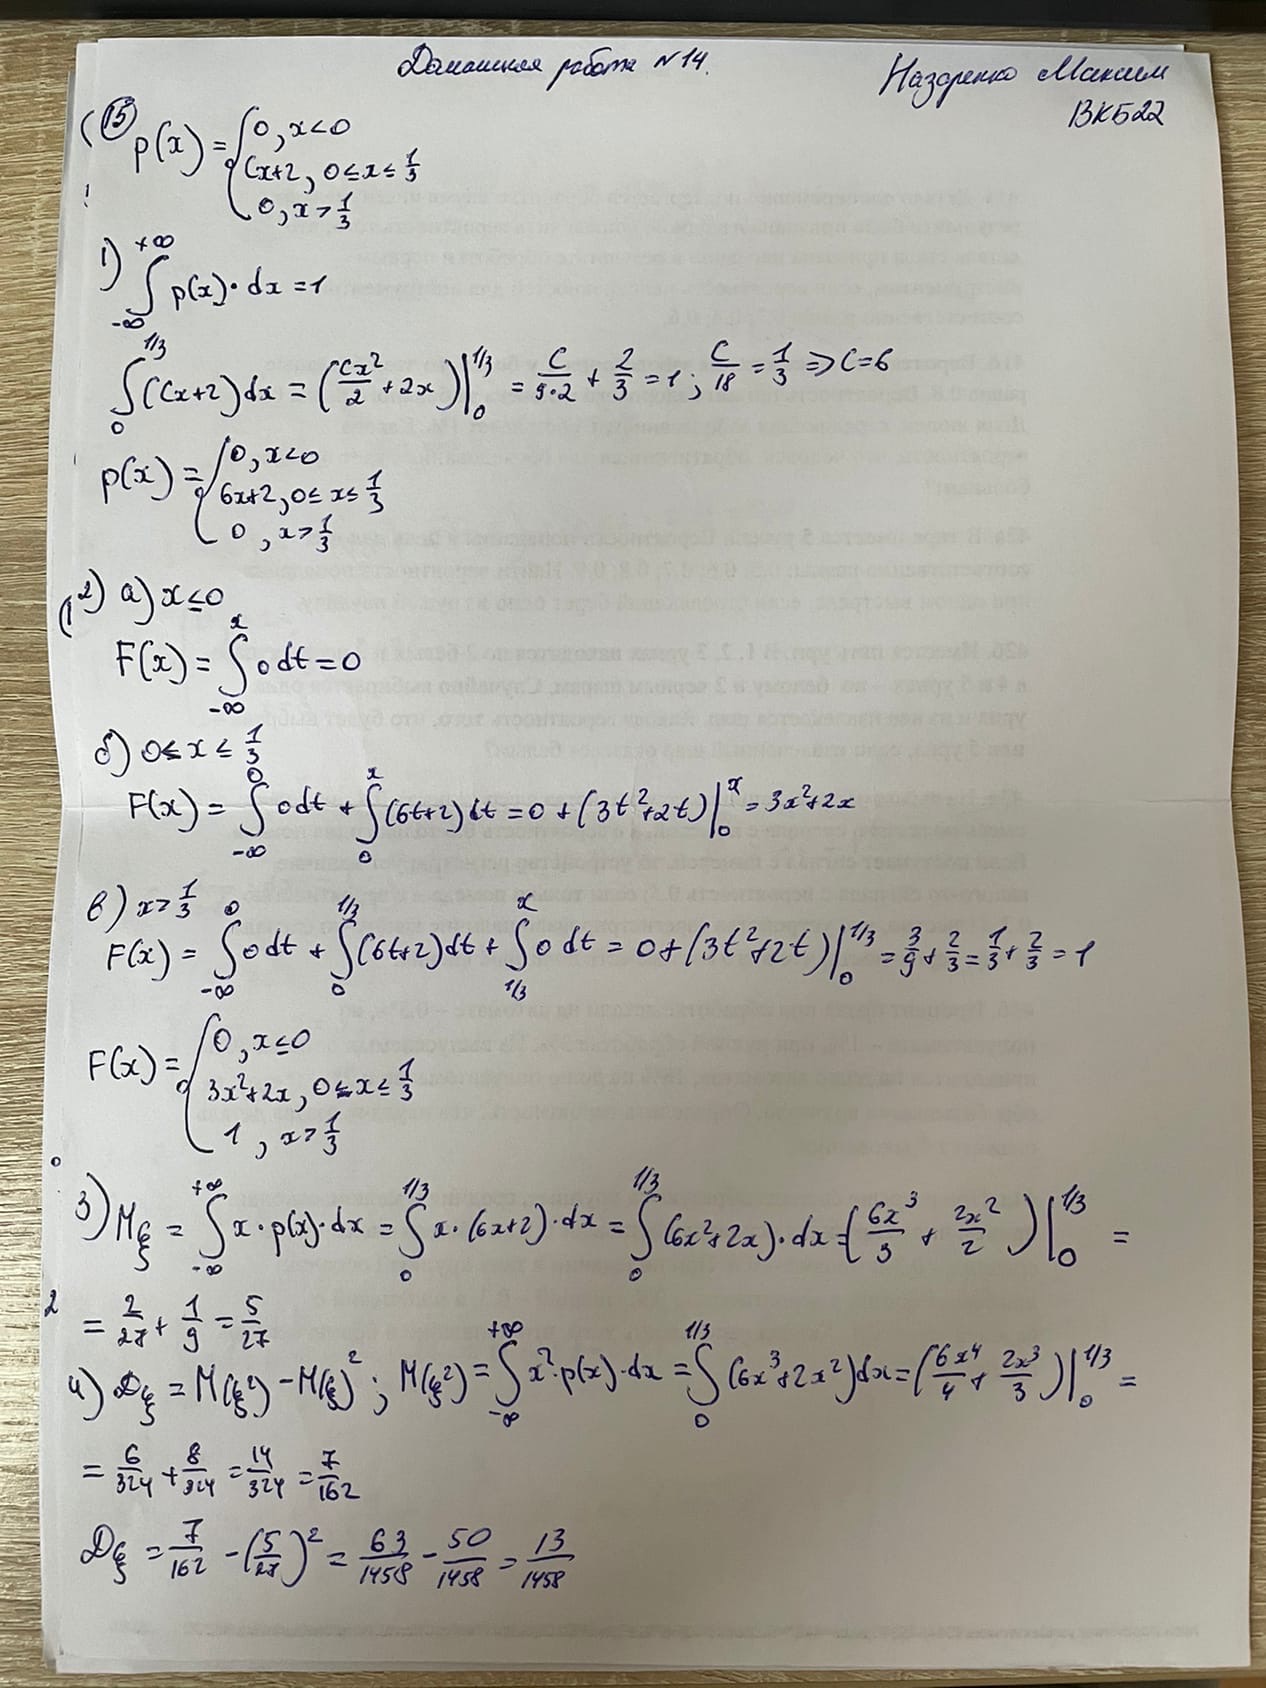 Домашняя работа №14.
Назаренко Максим
ВКБ22
(15)
p(x) = { 0, x<0
Cx+2, 0≤x≤1/3
0, x>1/3
1) ∫_{-∞}^{+∞} p(x)·dx = 1
∫_0^{1/3} (Cx+2)dx = (Cx²/2 + 2x)|_0^{1/3} = C/(9·2) + 2/3 = 1; C/18 = 1/3 => C=6
p(x) = { 0, x<0
6x+2, 0≤x≤1/3
0, x>1/3
2) а) x≤0
F(x) = ∫_{-∞}^x 0 dt = 0
б) 0≤x≤1/3
F(x) = ∫_{-∞}^0 0dt + ∫_0^x (6t+2)dt = 0 + (3t²+2t)|_0^x = 3x²+2x
в) x>1/3
F(x) = ∫_{-∞}^0 0dt + ∫_0^{1/3} (6t+2)dt + ∫_{1/3}^x 0 dt = 0+(3t²+2t)|_0^{1/3} = 3/9 + 2/3 = 1/3 + 2/3 = 1
F(x) = { 0, x≤0
3x²+2x, 0≤x≤1/3
1, x>1/3
3) Mξ = ∫_{-∞}^{+∞} x·p(x)·dx = ∫_0^{1/3} x·(6x+2)·dx = ∫_0^{1/3} (6x²+2x)·dx = (6x³/3 + 2x²/2)|_0^{1/3} =
= 2/27 + 1/9 = 5/27
4) Dξ = M(ξ²) - M(ξ)²; M(ξ²) = ∫_{-∞}^{+∞} x²·p(x)·dx = ∫_0^{1/3} (6x³+2x²)dx = (6x⁴/4 + 2x³/3)|_0^{1/3} =
= 6/324 + 8/324 = 14/324 = 7/162
Dξ = 7/162 - (5/27)² = 63/1458 - 50/1458 = 13/1458